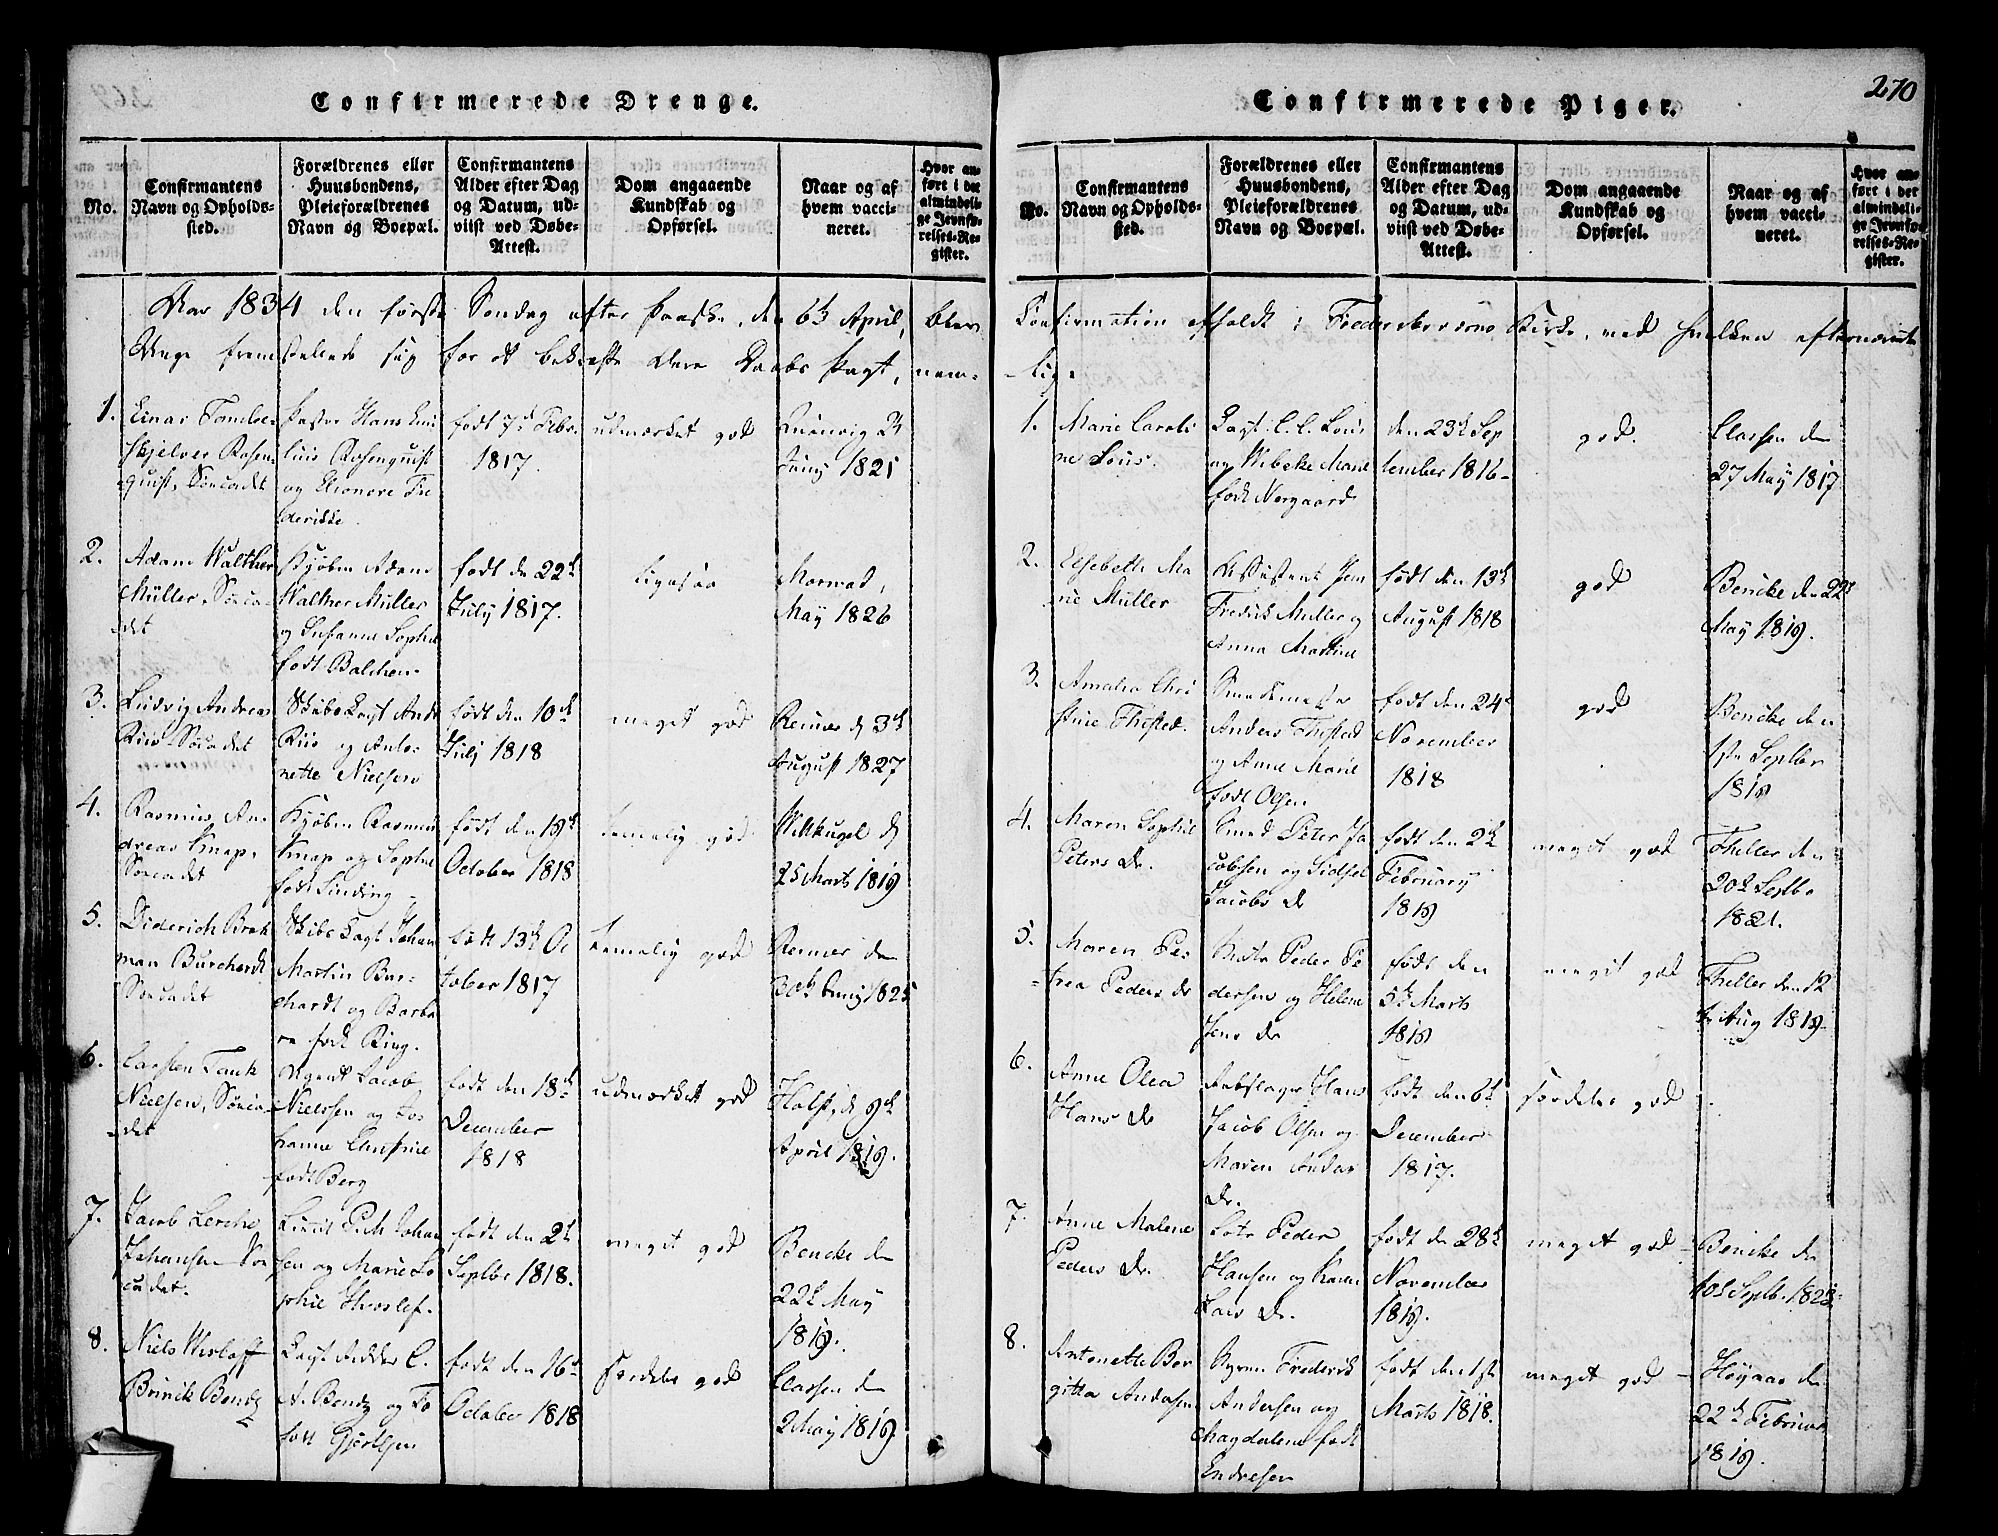 Confirmerede Drenge.
No.
Confirmantens
Navn og Opholds-
sted.
Forældrenes eller
Huusbondens,
Pleieforældrenes
Navn og Boepæl.
Confirmantens
Alder efter Dag
og Datum, ud-
viist ved Døbe-
Attest.
Dom angaaende
Kundskab og
Opførsel.
Naar og af
hvem vacci-
neret.
Hvor an-
ført i det
almindeli-
ge Jevnfø-
relses-Re-
gister.
Aar 1834 den første Søndag efter Paaske, den 6te April, blev
Unge fremstillede sig for at bekræfte deres Daabs Pagt, nem-
1.
Einar Tambe-
skjelver Rosen-
quist, Søcadet
Pastor Hans
Rosenquist
og Eleonore Fre
derikke
født 7d Febr.
1817.
udmærket god
Juny 1821
2.
Adam Walther
Müller, Søca-
det
Kjøbm Adam
Walther Müller
og Susanne Sophie
født Balchen
født den 22de
July 1817.
ligesaa
May 1826
3.
Ludvig Andreas
Riis Søcadet
Skibs Capt Andr
Riis og
nette Nielsen
født den 10de
July 1818
meget god
Reimer d 3de
August 1827
4.
Rasmus An-
dreas Knap,
Søcadet
Kjøbm Rasmus
Knap og Sophie
født Sinding
født den 19de
October 1818
temelig god
d
25 Marts 1819
5.
Diderich
man Burchardt
Søcadet
Skibs Capt Johan
Martin Bur-
chardt og Barba
ra født Ring.
født 13de Oc
tober 1817
temelig god
Reimer den
30te Juny 1825
6.
Carsten Tank
Nielsen, Søca-
det
Agent Jacob
Nielssen og Jo-
hanne
født Berg
født den 18de
December
1818
udmærket god
Holst, d. 9de
April 1819.
7.
Jacob Lerche
Johansen Sø-
cadet.
Lieut P. M. Johan
sen og Marie So
phie Hvoslef.
født den 2de
Septbr 1818.
meget god
Bencke den
22de May
1819.
8.
Niels Werloff
Brinck Bendz
Capt C.
A. Bendz og
født Gjertsen
født den 16de
October 1818
særdeles god
Classen den
2 May 1819
270
Confirmerede Piger.
No.
Confirmantens
Navn og Opholds-
sted.
Forældrenes eller
Huusbondens,
Pleieforældrenes
Navn og Boepæl.
Confirmantens
Alder efter Dag
og Datum, ud-
viist ved Døbe-
Attest.
Dom angaaende
Kundskab og
Opførsel.
Naar og af
hvem vacci-
neret.
Hvor an-
ført i det
almindeli-
ge Jevnfø-
relses-Re-
gister.
Confirmation afholdt i Frederiksværns Kirke, ved hvilken efternævnte
-lig:
1.
Marie Caroli
ne Lous.
Capt. C. C. Lous
og Wibeke Marie
født Nørgaard
den 23de Sep
tember 1816
god.
Classen den
27 May 1817
2.
Elsebeth Ma
rie Müller
Assistent Jen
Fredrik Müller og
Anna Martine
født den 13de
August 1818
god
Bencke den 22d
May 1819.
3.
Amalia Chri
stine Thisted.
Smedemester
Anders Thisted
og Anne Marie
født Olsen
født den 24d
November
1818
god
Bencke den
1ste Septbr
1819
4.
Maren Sophie
Peters Dr.
Smed Peter Ja
cobsen og Sidsel
Jacobs Dr
født den 2de
February
1819
meget god
Theller den
20de Septbr
1821.
5.
Maren Pe-
trea Peders Dr
Peder Pe
dersen og Helene
Jens Dr
født den
5te Marts
1819
meget god
Theller den 12
Aug 1819.
6.
Anne Olea
Hans Dr
Hans
Jacob Olsen og
Maren Anders
Dr.
født den 6te
December
1817.
særdeles god
7.
Anne Malene
Peders Dr.
Lots Peder
Hansen og Karen
Lars Dr.
født den 28de
November
1819.
meget god
Bencke den
10de Septb. 1823.
8.
Antonette Bor
gitta Andersen
Frederik
Andersen og
Magdalena født
Endresen
født den 1ste
Marts 1818.
meget god
Høyaas den
22de Februar
1819.